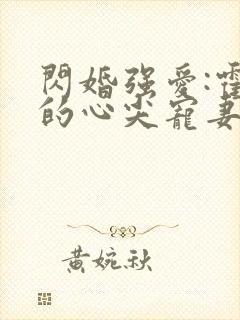 閃婚強愛:霍
的心尖寵妻
黃婉秋